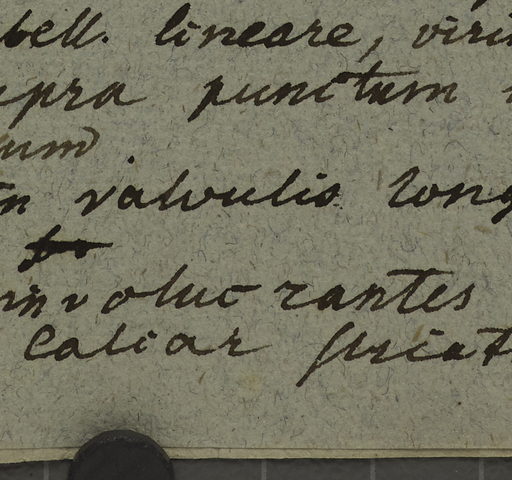 bell. lineare, viri
pra punctum
um
in valvulis long
involuc rantes
Calcar striat